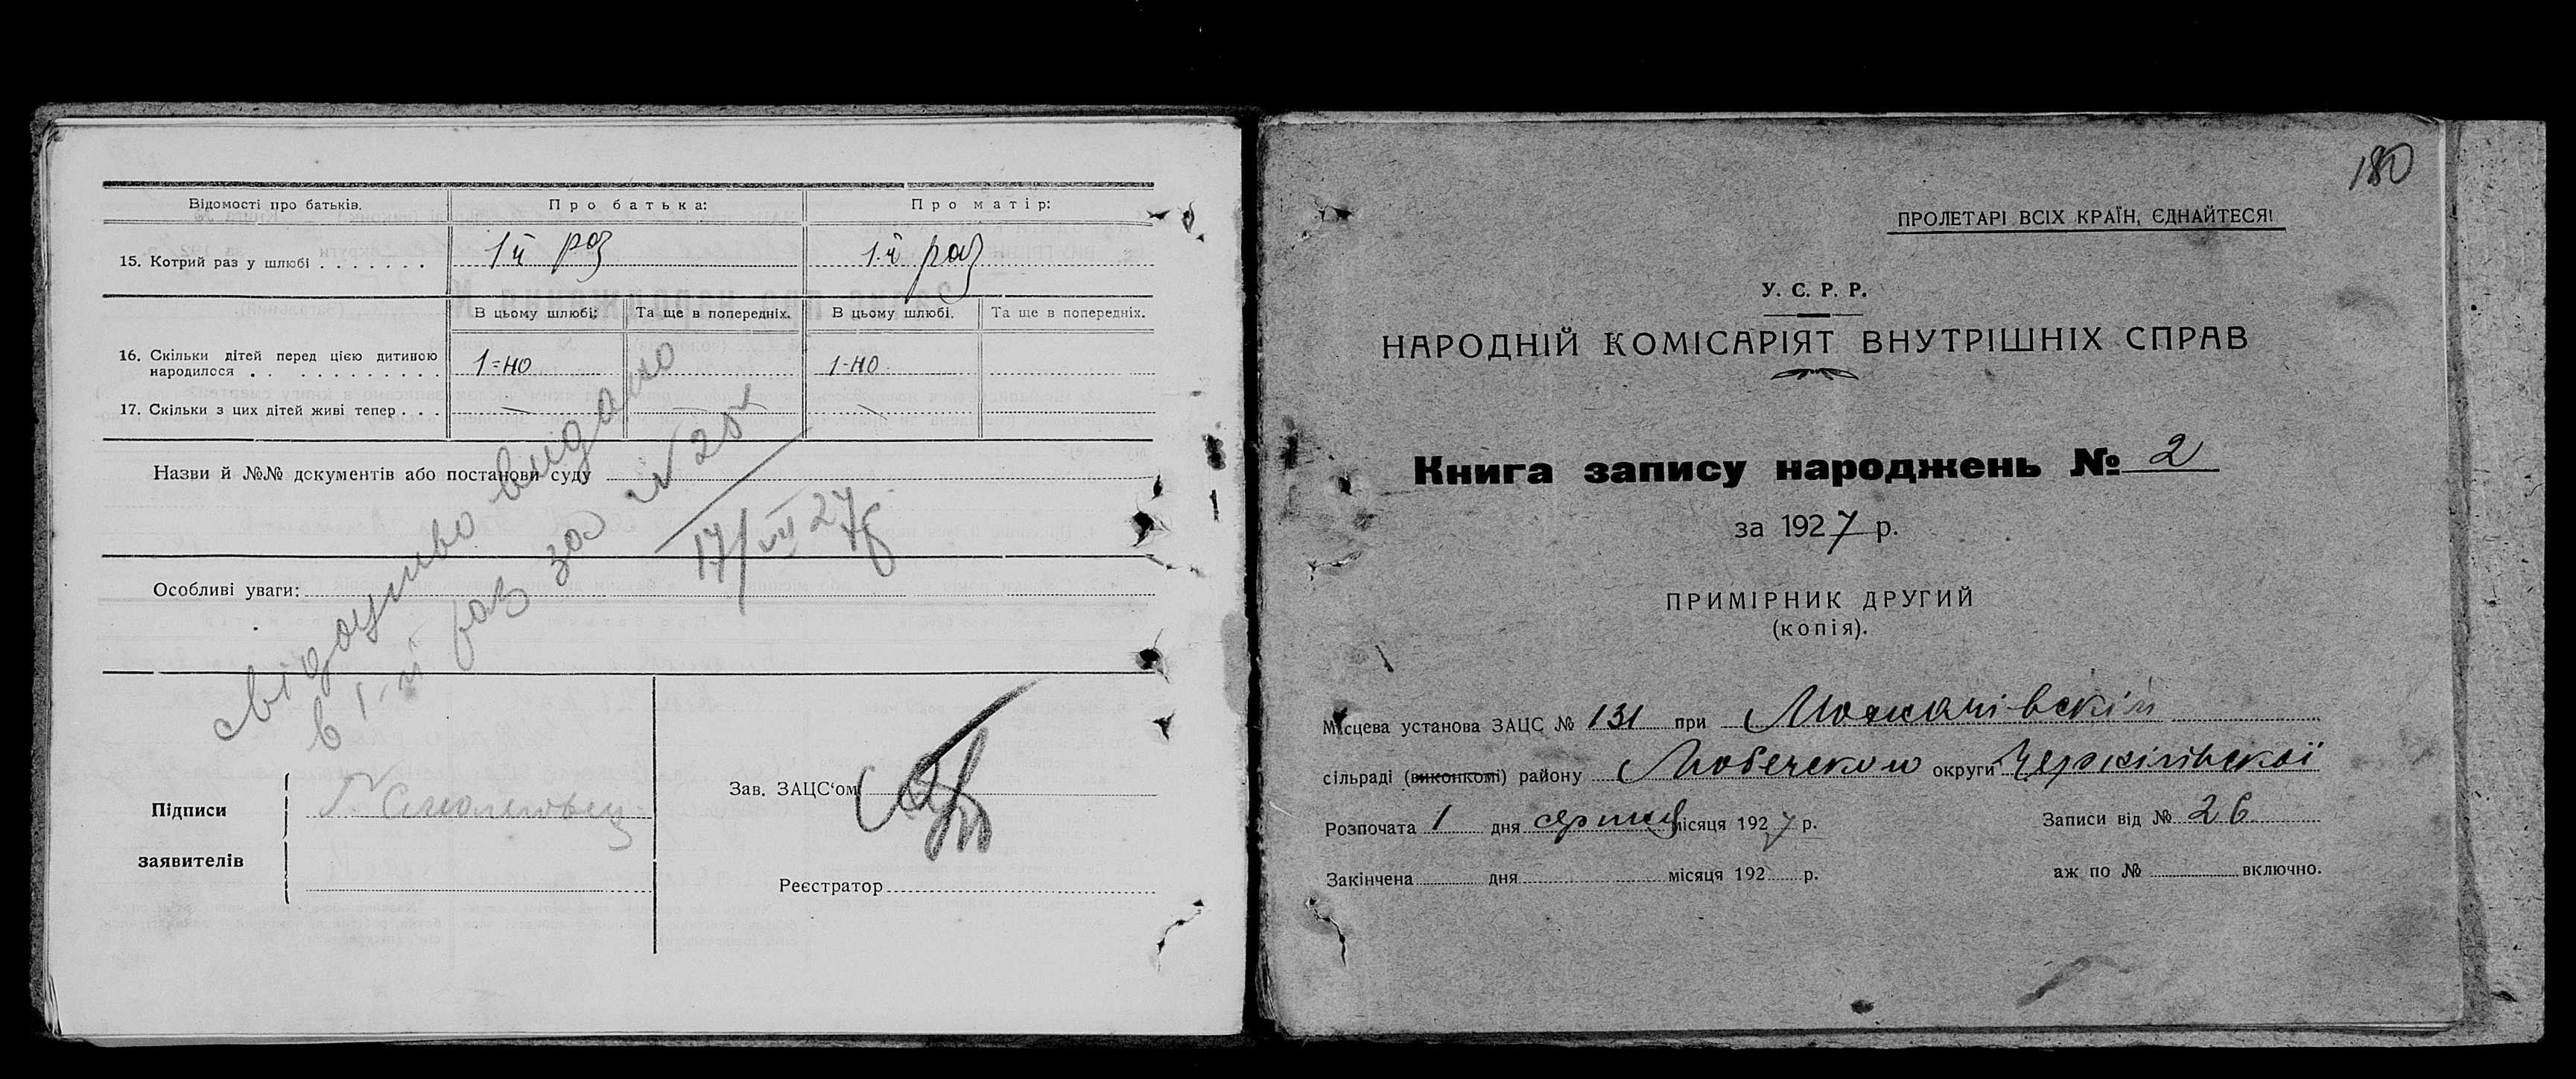 Відомості про батьків. Про батька: Про матір:
15. Котрий раз у шлюбі 1й раз 1-й раз
В цьому шлюбі: Та ще в попередніх. В цьому шлюбі. Та ще в попередніх.
16. Скільки дітей перед цією дитиною
народилося 1-но 1-но
17. Скільки з цих дітей живі тепер — —
Назви й №№ документів або постанови суду
Особливі уваги:
свідоцтво видано
в 1-й раз за №
17/VII 27р
Підписи
заявителів
Зав. ЗАЦС‘ом
Реєстратор
180
ПРОЛЕТАРІ ВСІХ КРАЇН, ЄДНАЙТЕСЯ!
У. С. Р. Р.
НАРОДНІЙ КОМІСАРІЯТ ВНУТРІШНІХ СПРАВ
Книга запису народжень № 2
за 1927 р.
ПРИМІРНИК ДРУГИЙ
(копія).
Місцева установа ЗАЦС № 131 при
сільраді (виконкомі) району Любечского округи Чернігівської
Розпочата 1 дня серпня місяця 1927 р. Записи від № 26
Закінчена дня місяця 192 р. аж по № включно.